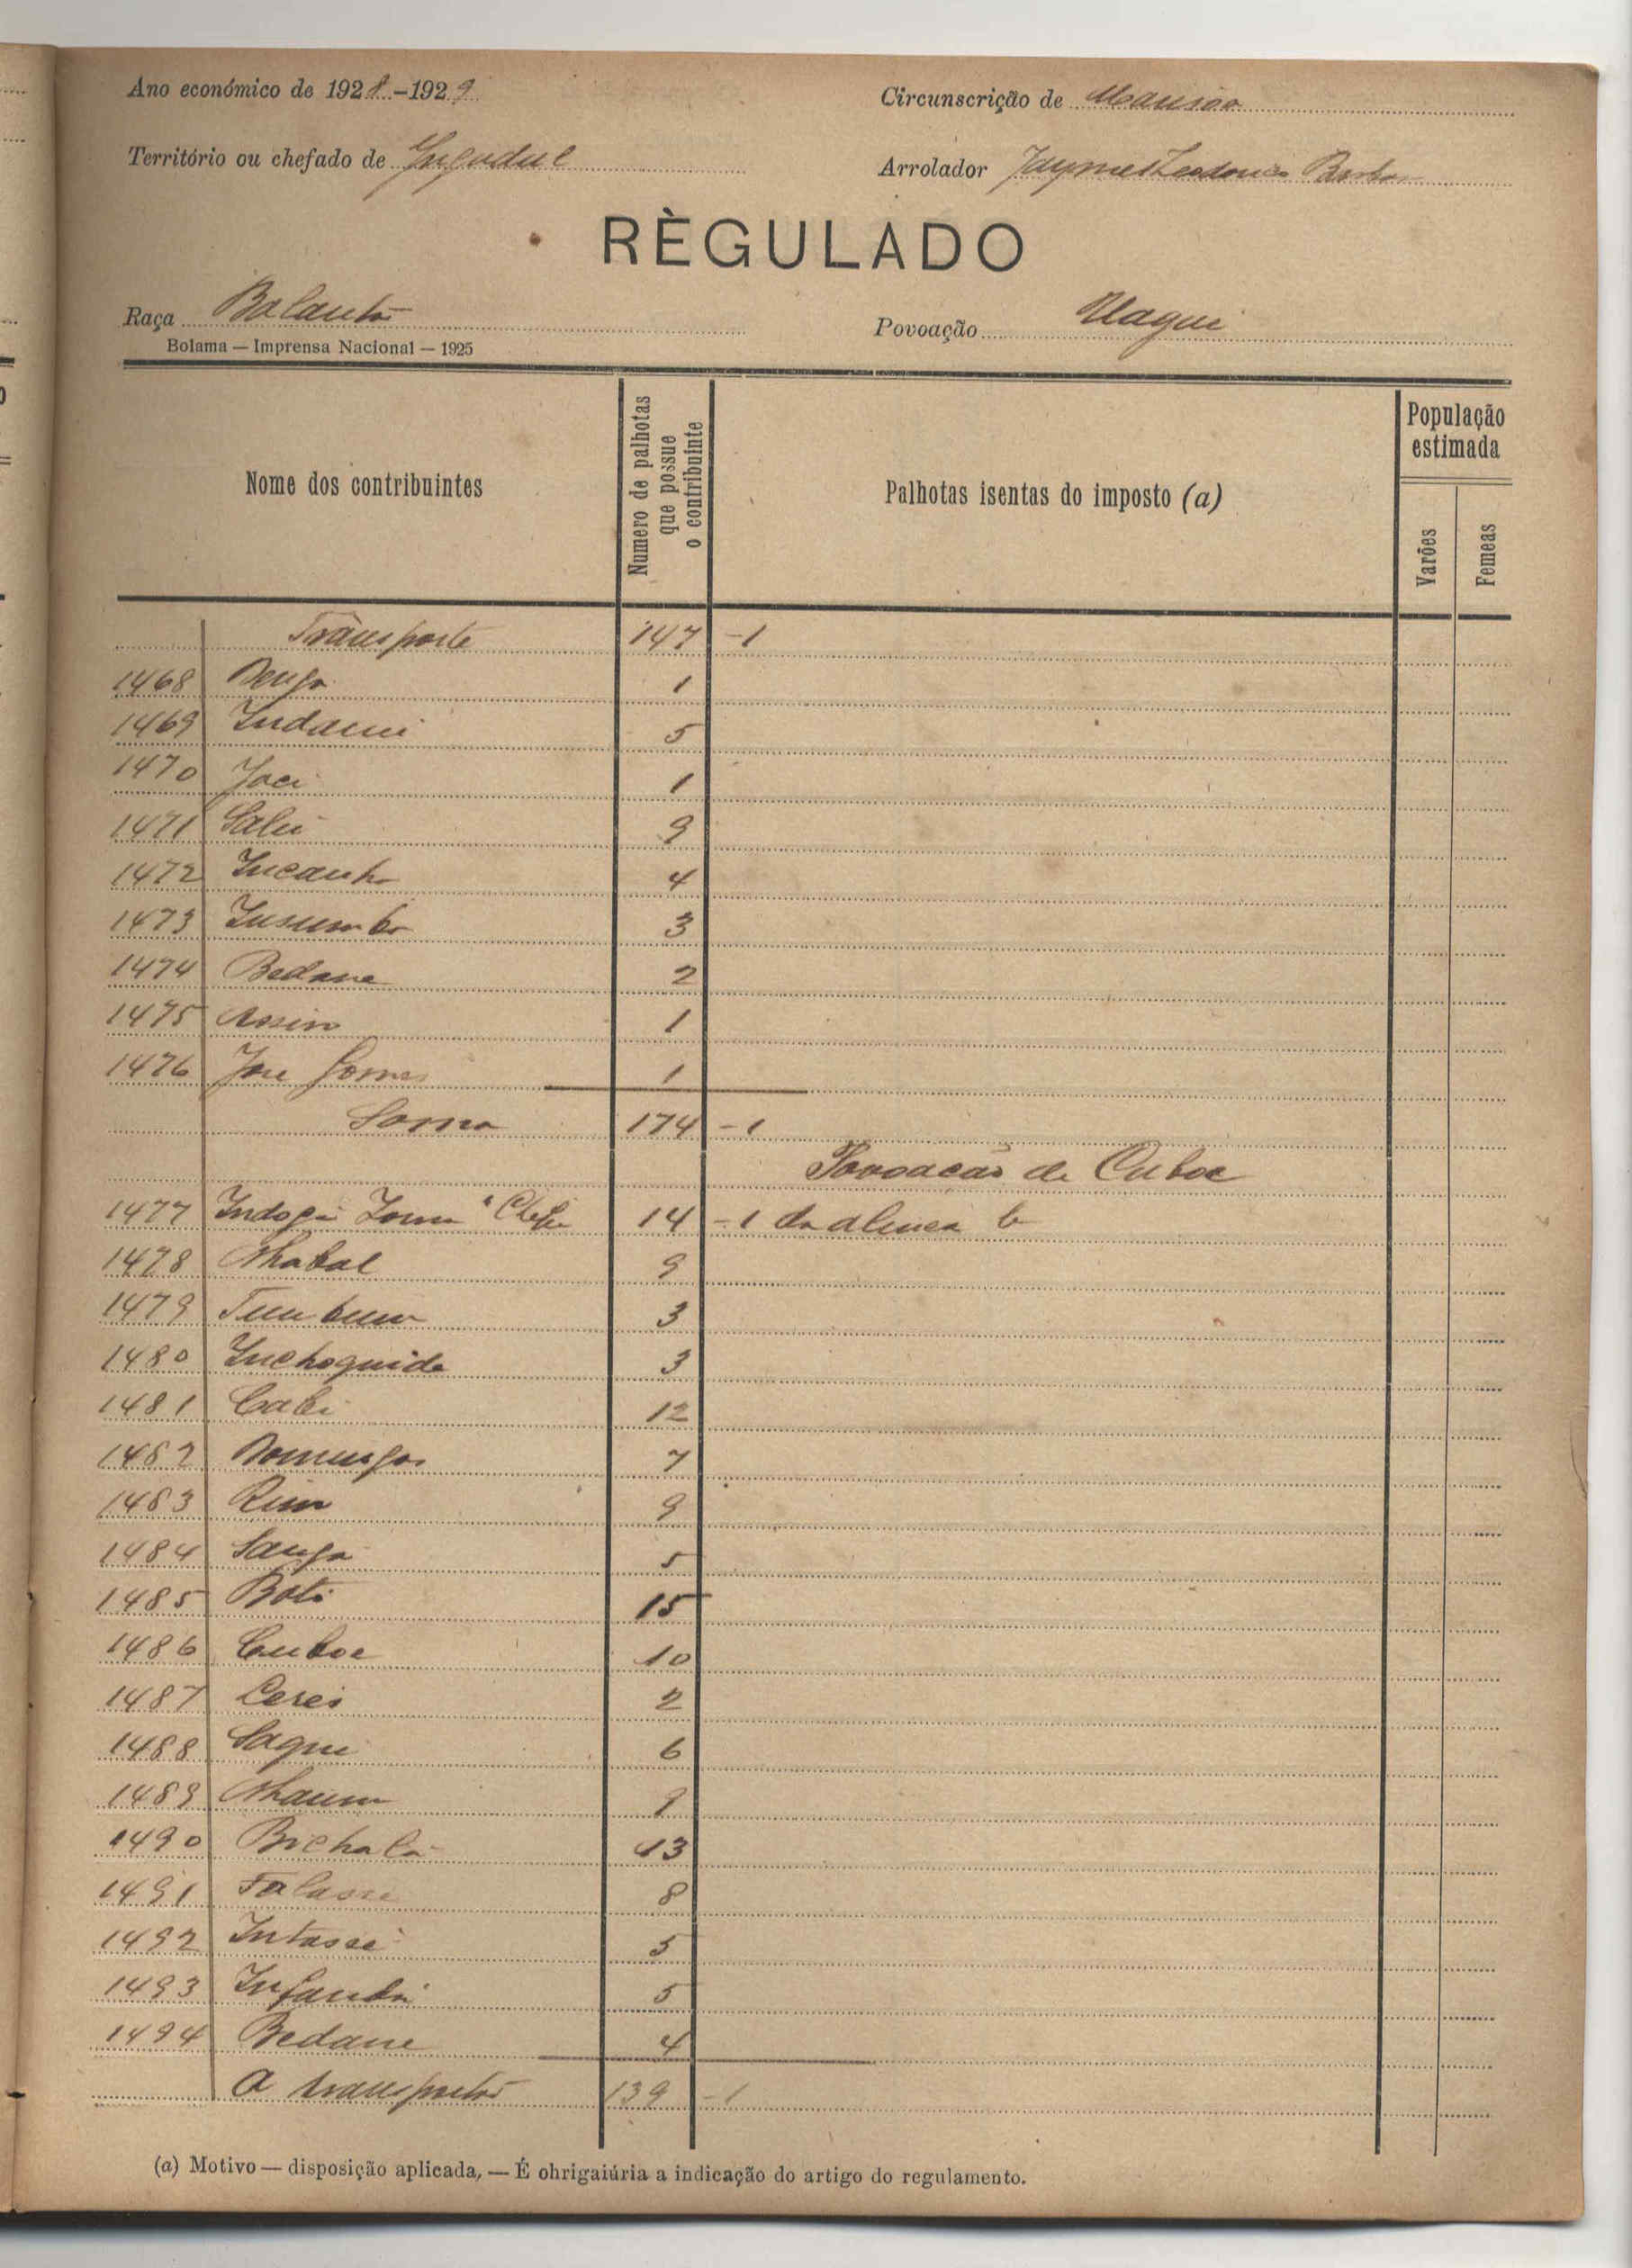 Ano económico de 1928-1929
Circunscrição de Mansoa
Território ou chefado de
Arrolador Jayme Barbosa
RÈGULADO
Raça Balanta
Povoação Uaque
Bolama — Imprensa Nacional — 1925
Nome dos contribuintes
Numero de palhotas que possue o contribuinte
Palhotas isentas do imposto (a)
População estimada
Varões
Femeas
Transporte 147 -1
1468 1
1469 Indami 5
1470 Joei 1
1471 9
1472 Incanha 4
1473 Insumbo 3
1474 Bedane 2
1475 Assim 1
1476 Jose Gomes 1
Soma 174 -1
Povoação de Cuboe
1477 Chefe 14 -1 da alinea b
1478 Nhabal 9
1479 Tumbum 3
1480 Inchoguida 3
1481 Cabi 12
1482 Domingos 7
1483 9
1484 Sanga 5
1485 Boti 15
1486 Cuboe 10
1487 Cerei 2
1488 Saqui 6
1489 Nhaum 9
1490 Bichalá 13
1491 8
1492 Intassé 5
1493 Infanda 5
1494 Bedane 4
A transportar 139 -1
(a) Motivo — disposição aplicada, — É ohrigaiúria a indicação do artigo do regulamento.